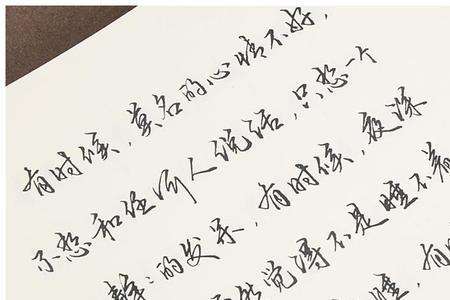 有时候，莫名的心情不好，
不想和任何人说话，只想一个
静:的发呆，有时候，夜深
然觉得不是睡不着
睡，有